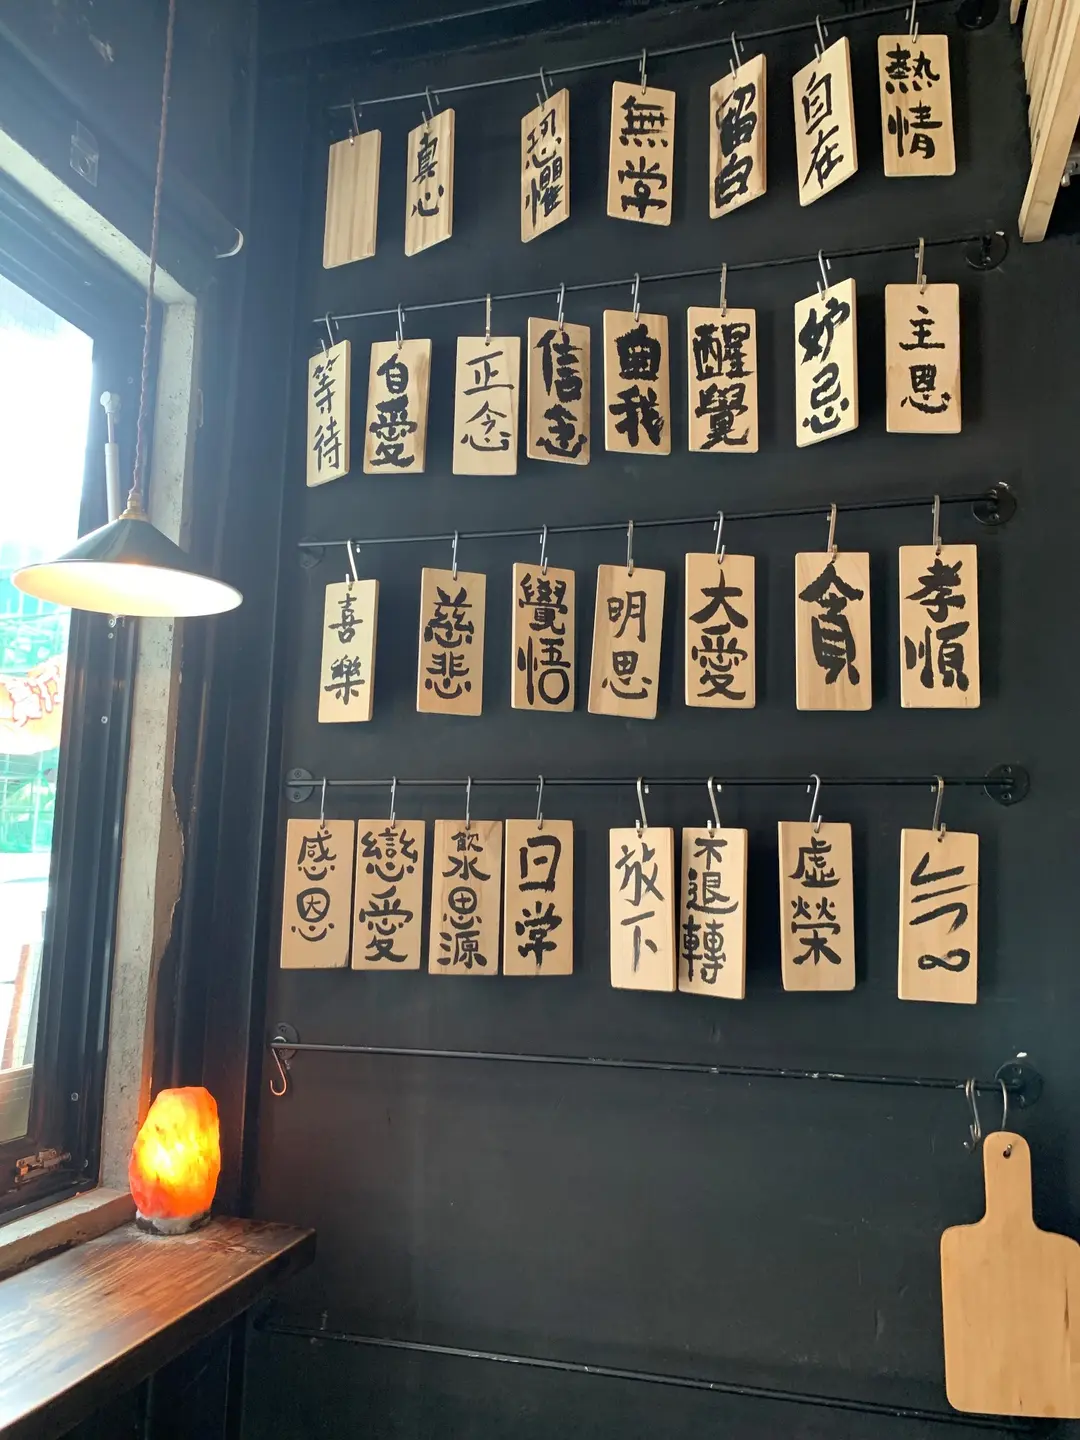 真心
恐懼
無常
留白
自在
熱情
等待
自愛
正念
信念
自我
醒覺
妒忌
主恩
喜樂
慈悲
覺悟
明思
大愛
貪
孝順
感恩
戀愛
飲水思源
日常
放下
不退轉
虛榮